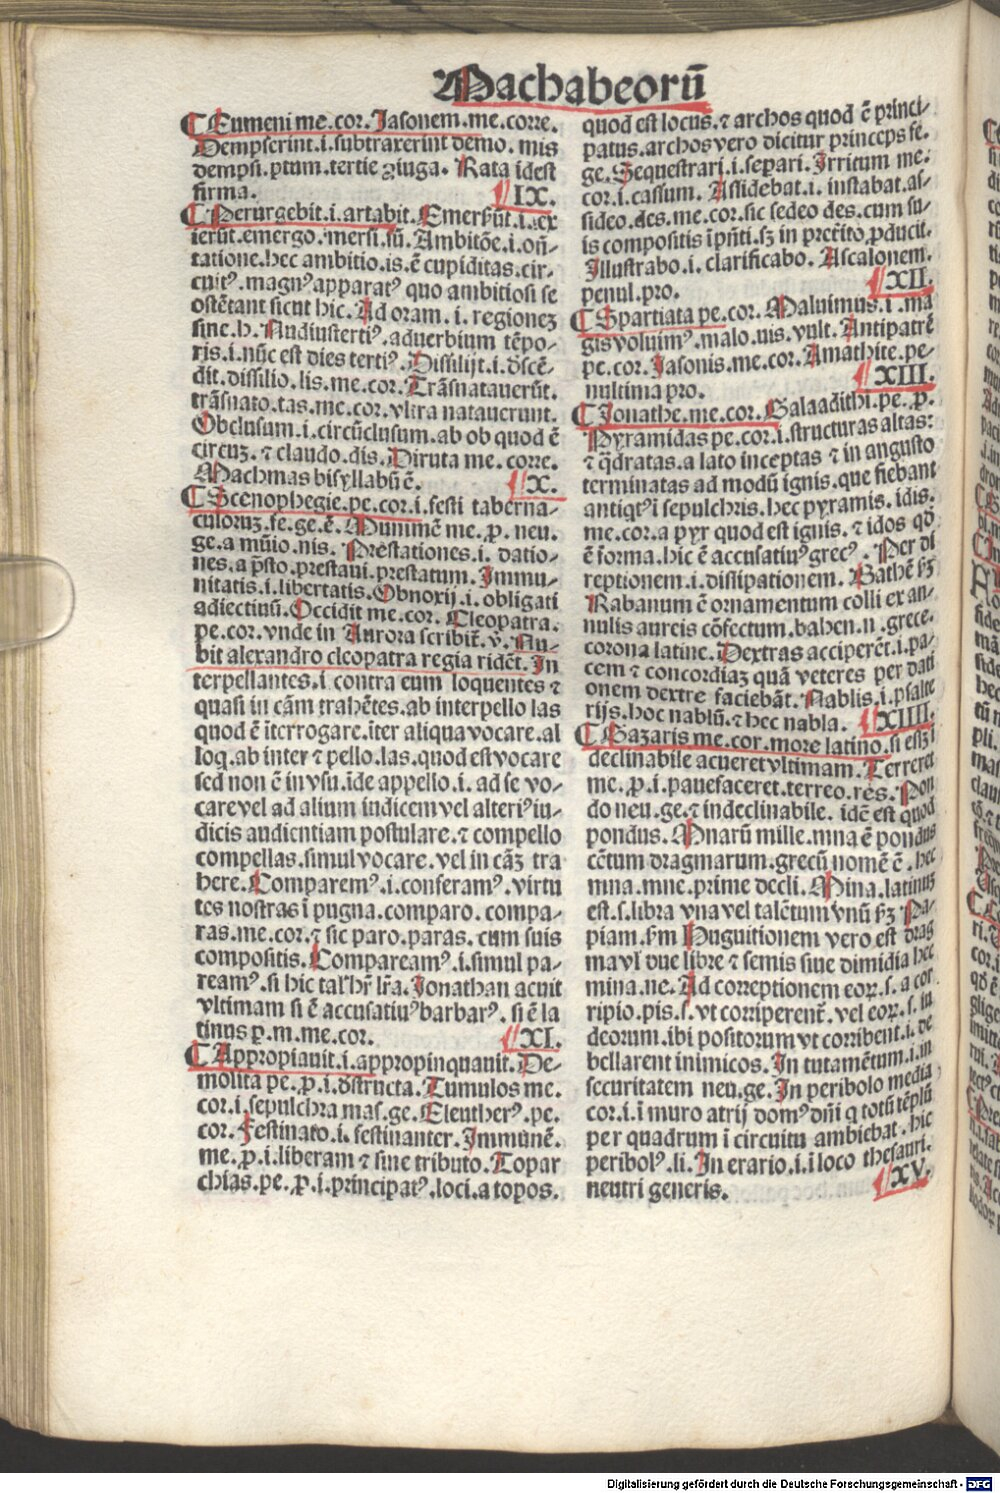 Machabeorū
¶ Eumeni me.cor. Jasonem.me.corre.
Dempserint.i.subtraxerint demo.mis
dempsi.ptum.tertie ꝯiuga. Rata idest
firma. IX.
¶ Perurgebit.i.artabit. Emersūt.i.ex
ierūt.emergo.mersi.sū. Ambitōe.i.oñ-
tatione.hec ambitio.is.ē cupiditas.cir-
cuitꝰ.magnꝰ apparatꝰ quo ambitiosi se
ostētant sicut hic. Ad oram.i.regionez
sine.h. Nudiustertiꝰ.aduerbium tēpo-
ris.i.nūc est dies tertiꝰ. Dissilijt.i.dscē-
dit.dissilio.lis.me.cor. Trāsnatauerūt.
trāsnato.tas.me.cor.vltra natauerunt.
Obclusum.i.circūclusum.ab ob quod ē
circuz.⁊ claudo.dis. Diruta me.corre.
Machmas bisyllabū ē. X.
¶ Scenophegie.pe.cor.i.festi taberna-
culoruz.fe.ge.ē. Mummē me.p.neu.
ge.a mūio.nis. Prestationes.i.datio-
nes.a p̄sto.prestaui.prestatum. Immu-
nitatis.i.libertatis. Obnoxij.i.obligati
adiectiuū. Occidit me.cor. Cleopatra.
pe.cor.vnde in Aurora scribit̄.v̄. Nu-
bit alexandro cleopatra regia ridēt. In
terpellantes.i contra eum loquentes ⁊
quasi in cām trahētes.ab interpello las
quod ē īterrogare.īter aliqua vocare.al
loq̄.ab inter ⁊ pello.las.quod est vocare
sed non ē in vsu.īde appello.i.ad se vo-
care vel ad alium iudicem vel alteriꝰ iu-
dicis audientiam postulare.⁊ compello
compellas.simul vocare.vel in cāz tra
here. Comparemꝰ.i.conferamꝰ.virtu
tes nostras ī pugna.comparo.compa-
ras.me.cor.⁊ sic paro.paras.cum suis
compositis. Compareamꝰ.i.simul pa-
reamꝰ.si hic talr̄ hr̄ lr̄a. Jonathan acuit
vltimam si ē accusatiuꝰ barbarꝰ.si ē la
tinus p.m.me.cor. XI.
¶ Appropiauit.i.appropinquauit. De-
molita pe.ꝓ.i.dstructa. Tumulos me.
cor.i.sepulchra mas.ge. Eleutherꝰ.pe.
cor. Festinato.i.festinanter. Immunē.
me.ꝓ.i.liberam ⁊ sine tributo. Topar
chias.pe.ꝓ.i.principatꝰ.loci.a topos.
quod est locus.⁊ archos quod ē princi-
patus.archos vero dicitur princeps fe.
ge. Sequestrari.i.separi. Irritum me.
cor.i.cassum. Assidebat.i.instabat.as-
sideo.des.me.cor.sic sedeo des.cum su-
is compositis īpn̄ti.sz in pret̄ito ꝓducit.
Illustrabo.i.clarificabo. Ascalonem.
penul.pro. XII.
¶ Spartiata pe.cor. Maluimus.i.ma
gis voluimꝰ.malo.uis.vult. Antipatrē
pe.cor. Jasonis.me.cor. Amathite.pe-
nultima pro. XIII.
¶ Jonathe.me.cor. Galaadithi.pe.ꝓ.
Pyramidas pe.cor.i.structuras altas:
⁊ q̄dratas.a lato inceptas ⁊ in angusto
terminatas ad modū ignis.que fiebant
antiqtꝰ i sepulchris.hec pyramis.idis.
me.cor.a pyr quod est ignis.⁊ idos qd̄
ē forma.hic ē accusatiuꝰ grecꝰ. Per di
reptionem.i.dissipationem. Bathē fz
Rabanum ē ornamentum colli ex an-
nulis aureis cōfectum.bahen.n.grece.
corona latine. Dextras acciperēt.i.pa-
cem ⁊ concordiaz quā veteres per dati
onem dextre faciebāt. Nablis.i.psalte
rijs.hoc nablū.⁊ hec nabla. XIIII.
¶ Gazaris me.cor.more latino.si esz i
declinabile acueret vltimam. Terreret
me.ꝓ.i.pauefaceret.terreo.res. Pon
do neu.ge.⁊ indeclinabile.idē est quod
pondus. Mnarū mille.mna ē pondus
cētum dragmarum.grecū nomē ē.hec
mna.mne.prime decli. Mina.latinuz
est.s.libra vna vel talētum vnū fz Pa-
piam.fm Huguitionem vero est drag
ma vl̄ due libre ⁊ semis siue dimidia hec
mina.ne. Ad correptionem eoꝝ.s.a cor
ripio.pis.s.vt corriperent̄.vel eoꝝ.s.iu
deorum.ibi positorum vt corribent.i.de
bellarent inimicos. In tutamētum.i.in
securitatem neu.ge. In peribolo media
cor.i.i muro atrij domꝰ dn̄i q totū tēplū
per quadrum i circuitu ambiebat.hic
peribolꝰ.li. In erario.i.i loco thesauri.
neutri generis. XV.